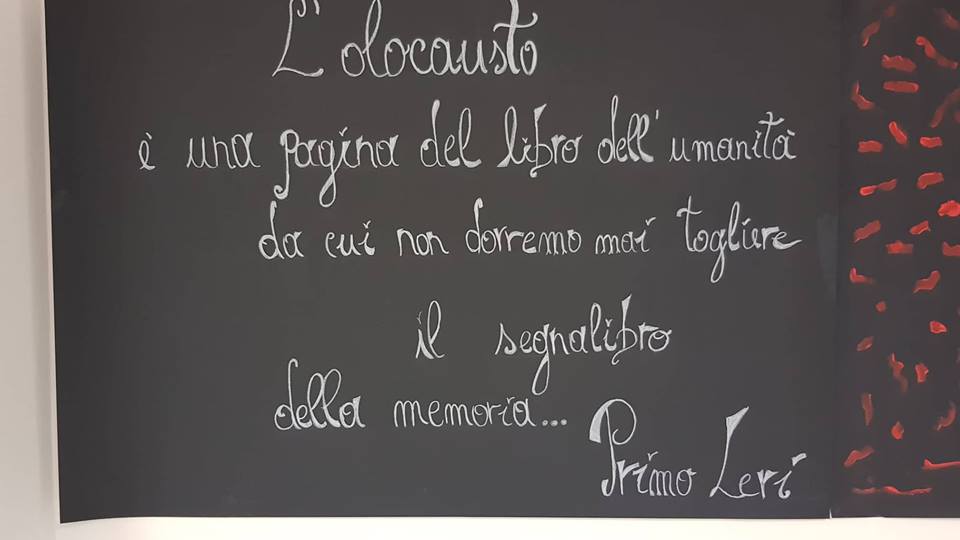 L'olocausto
è una pagina del libro dell'umanità
da cui non dovremo mai togliere
il segnalibro
della memoria...
Primo Levi